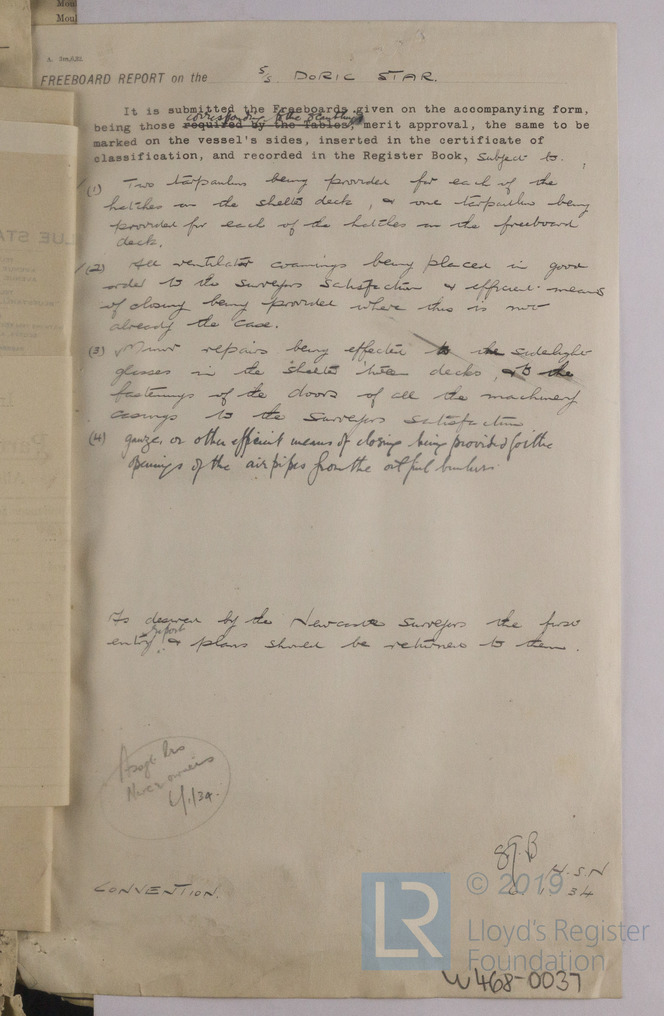 Moul
Moul
A. 3m,6,32
FREEBOARD REPORT on the S/S DORIC STAR.
It is submitted the Freeboards given on the accompanying form,
corresponding to the scantlings
being those required by the Tables, merit approval, the same to be
marked on the vessel's sides, inserted in the certificate of
classification, and recorded in the Register Book, subject to:
(1) Two tarpaulins being provided for each of the
hatches on the shelter deck, & one tarpaulin being
provided for each of the hatches on the freeboard
deck.
(2) All ventilator coamings being placed in good
order to the Surveyors satisfaction & efficient means
of closing being provided where this is not
already the case.
(3) Minor repairs being effected to the sidelight
glasses in the shelter 'tween decks, & to the
fastenings of the doors of all the machinery
casings to the Surveyors satisfaction
(4) gauze, or other efficient means of closing being provided for the
openings of the air pipes from the oil fuel bunkers.
As desired by the Newcastle Surveyors the first
report
entry & plans should be returned to them.
6/1/34.
CONVENTION.
H.S.N
34
LR
© 2019
Lloyd's Register
Foundation
W468-0037